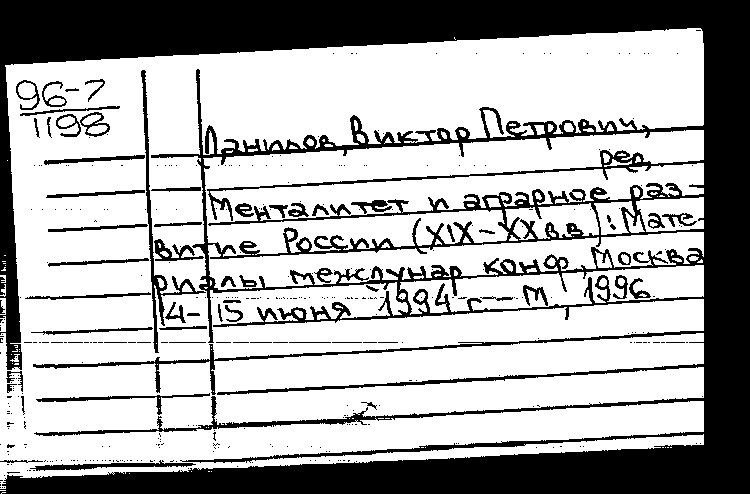 96-7
1198
Данилов, Виктор Петрович,
ред.
Менталитет и аграрное раз-
витие России (XIX-XX в.в.): Мате-
риалы междунар конф, Москва
14-15 июня 1994 г. - М., 1996